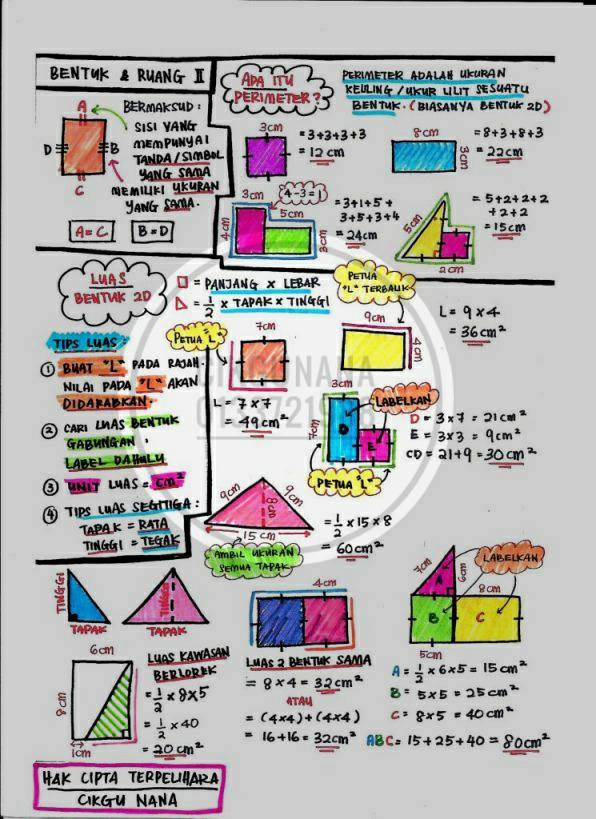 BENTUK & RUANG II
A
D
B
C
BERMAKSUD :
SISI YANG
MEMPUNYAI
TANDA/SIMBOL
YANG SAMA
MEMILIKI UKURAN
YANG SAMA.
A=C
B=D
APA ITU
PERIMETER?
PERIMETER ADALAH UKURAN
KELILING / UKUR LILIT SESUATU
BENTUK. (BIASANYA BENTUK 2D)
3cm
= 3+3+3+3
= 12 cm
8cm
3cm
= 8+3+8+3
= 22cm
3cm
4-3=1
5cm
4cm
3cm
= 3+1+5+
3+5+3+4
= 24cm
5cm
2cm
= 5+2+2+2
+2+2
= 15cm
LUAS
BENTUK 2D
= PANJANG X LEBAR
= 1/2 X TAPAK X TINGGI
TIPS LUAS :
① BUAT "L" PADA RAJAH.
NILAI PADA "L" AKAN
DIDARABKAN.
② CARI LUAS BENTUK
GABUNGAN.
LABEL DAHULU
③ UNIT LUAS = cm²
④ TIPS LUAS SEGITIGA :
TAPAK = RATA
TINGGI = TEGAK
PETUA "L"
7cm
L = 7 x 7
= 49cm²
PETUA
"L" TERBALIK
9cm
4cm
L = 9 x 4
= 36cm²
CIKGUNANA
3cm
7cm
D
E
LABELKAN
PETUA "L"
D = 3 x 7 = 21cm²
E = 3x3 = 9cm²
CD = 21+9 = 30cm²
9cm
9cm
8cm
15 cm
AMBIL UKURAN
SEMUA TAPAK
= 1/2 x 15 x 8
= 60cm²
TINGGI
TAPAK
TINGGI
TAPAK
4cm
LUAS 2 BENTUK SAMA
= 8 x 4 = 32cm²
ATAU
= (4x4)+(4x4)
= 16+16 = 32cm²
LABELKAN
7cm
6cm
8cm
A
B
C
5cm
A = 1/2 x 6x5 = 15cm²
B = 5x5 = 25cm²
C = 8x5 = 40cm²
ABC = 15+25+40 = 80cm²
6cm
8cm
1cm
LUAS KAWASAN
BERLOREK
= 1/2 x 8x5
= 1/2 x 40
= 20cm²
HAK CIPTA TERPELIHARA
CIKGU NANA